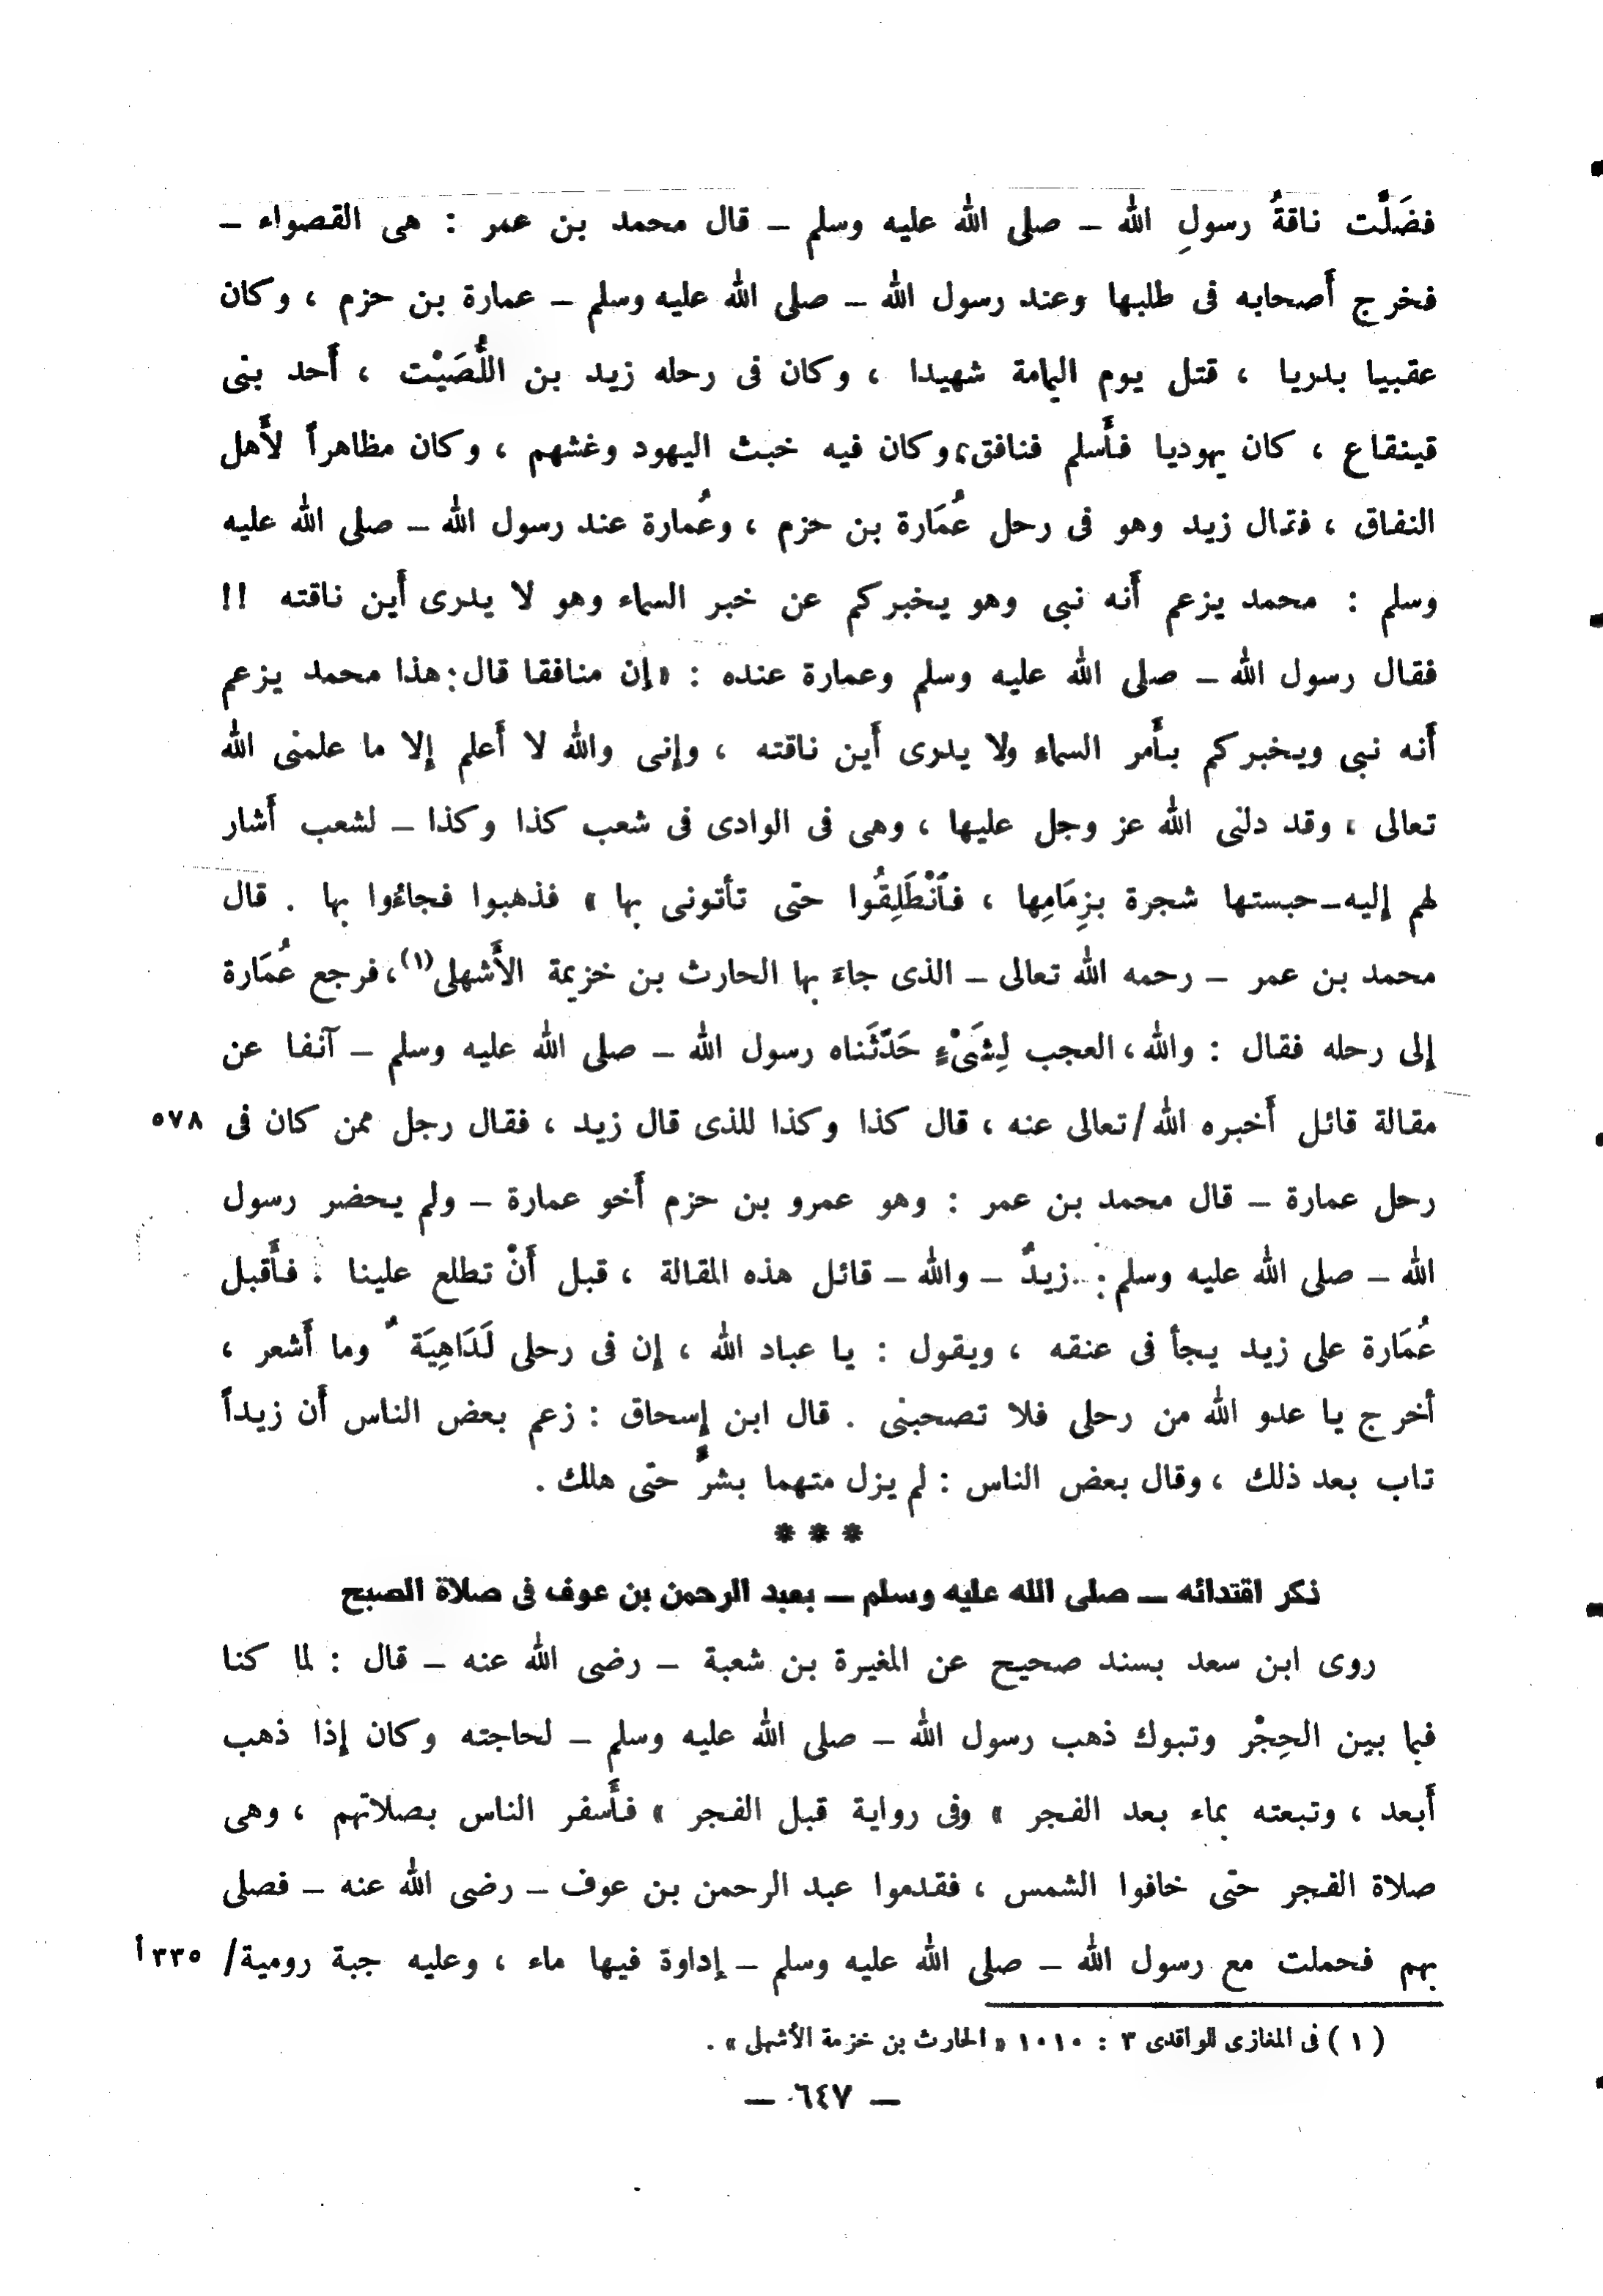 فضَلَّت ناقةُ رسولِ الله – صلى الله عليه وسلم – قال محمد بن عمر : هى القصواء –
فخرج أصحابه فى طلبها وعند رسول الله – صلى الله عليه وسلم – عمارة بن حزم ، وكان
عقبيا بدريا ، قتل يوم اليمامة شهيدا ، وكان فى رحله زيد بن اللُّصَيْت ، أحد بنى
قينقاع ، كان يهوديا فأسلم فنافق، وكان فيه خبث اليهود وغشهم ، وكان مظاهراً لأهل
النفاق ، فقال زيد وهو فى رحل عُمَارة بن حزم ، وعُمارة عند رسول الله – صلى الله عليه
وسلم : محمد يزعم أنه نبى وهو يخبركم عن خبر السماء وهو لا يدرى أين ناقته !!
فقال رسول الله – صلى الله عليه وسلم وعمارة عنده : «إن منافقا قال: هذا محمد يزعم
أنه نبى ويخبركم بأمر السماء ولا يدرى أين ناقته ، وإنى والله لا أعلم إلا ما علمنى الله
تعالى ، وقد دلنى الله عز وجل عليها ، وهى فى الوادى فى شعب كذا وكذا – لشعب أشار
لهم إليه – حبستها شجرة بزِمَامِها ، فٱنْطَلِقُوا حتى تأتونى بها » فذهبوا فجاءُوا بها . قال
محمد بن عمر – رحمه الله تعالى – الذى جاءَ بها الحارث بن خزيمة الأشهلى(١)، فرجع عُمَارة
إلى رحله فقال : والله، العجب لِشَىْءٍ حَدَّثَناه رسول الله – صلى الله عليه وسلم – آنفا عن
مقالة قائل أخبره الله/تعالى عنه ، قال كذا وكذا للذى قال زيد ، فقال رجل ممن كان فى ٥٧٨
رحل عمارة – قال محمد بن عمر : وهو عمرو بن حزم أخو عمارة – ولم يحضر رسول
الله – صلى الله عليه وسلم : زيدٌ – والله – قائل هذه المقالة ، قبل أنْ تطلع علينا . فأقبل
عُمَارة على زيد يجأ فى عنقه ، ويقول : يا عباد الله ، إن فى رحلى لَدَاهِيَةٌ وما أشعر ،
أخرج يا عدو الله من رحلى فلا تصحبنى . قال ابن إسحاق : زعم بعض الناس أن زيداً
تاب بعد ذلك ، وقال بعض الناس : لم يزل متهما بشرٍّ حتى هلك .
* * *
ذكر اقتدائه – صلى الله عليه وسلم – بعبد الرحمن بن عوف فى صلاة الصبح
روى ابن سعد بسند صحيح عن المغيرة بن شعبة – رضى الله عنه – قال : لما كنا
فيما بين الحِجْر وتبوك ذهب رسول الله – صلى الله عليه وسلم – لحاجته وكان إذا ذهب
أبعد ، وتبعته بماء بعد الفجر » وفى رواية قبل الفجر » فأسفر الناس بصلاتهم ، وهى
صلاة الفجر حتى خافوا الشمس ، فقدموا عبد الرحمن بن عوف – رضى الله عنه – فصلى
بهم فحملت مع رسول الله – صلى الله عليه وسلم – إداوة فيها ماء ، وعليه جبة رومية/ ٣٣٥أ
(١) فى المغازى للواقدى ٣ : ١٠١٠ «الحارث بن خزمة الأشهلى» .
– ٦٤٧ –